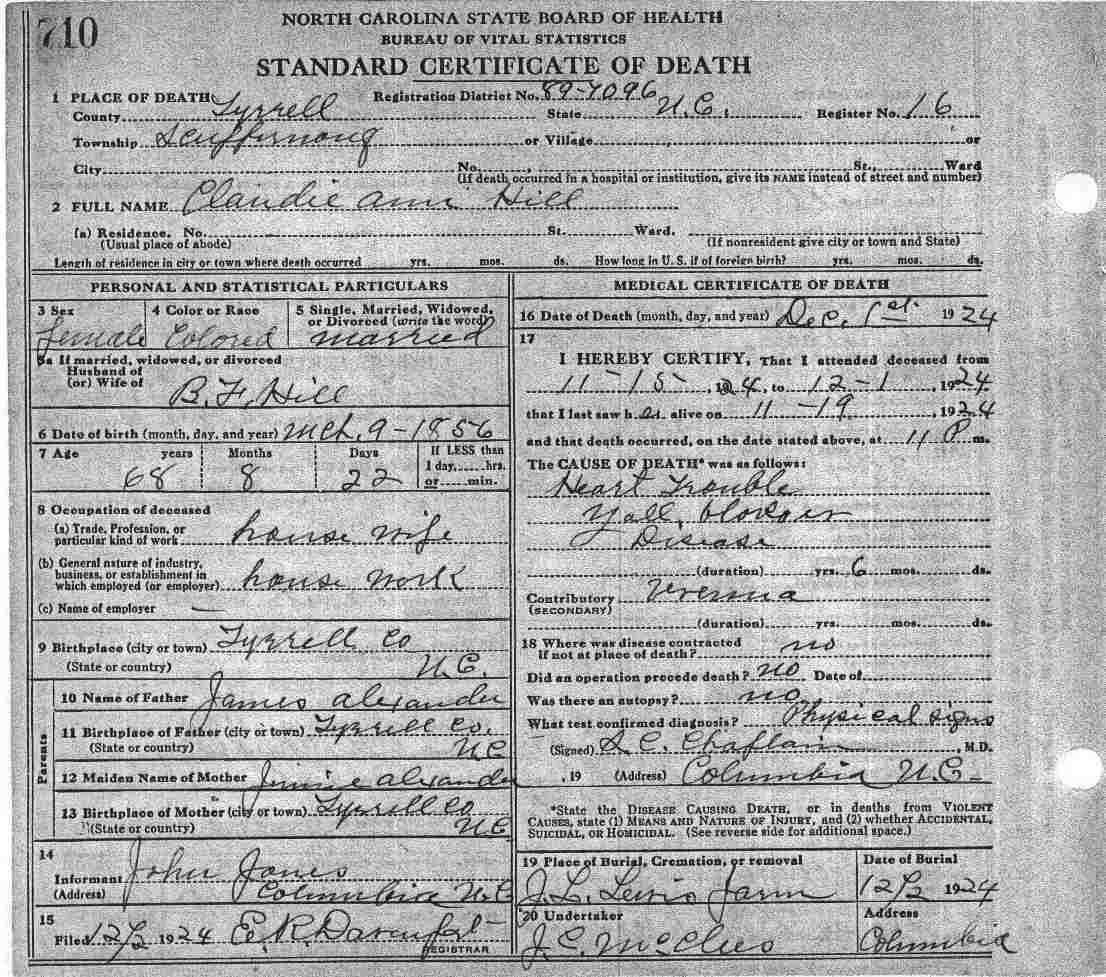 710
NORTH CAROLINA STATE BOARD OF HEALTH
BUREAU OF VITAL STATISTICS
STANDARD CERTIFICATE OF DEATH
1 PLACE OF DEATH Registration District No. 89-7096
County Tyrrell State N.C. Register No. 16
Township Scuppernong or Village or
City No. St., Ward
(If death occurred in a hospital or institution, give its NAME instead of street and number)
2 FULL NAME Claudie Ann Hill
(a) Residence. No. St. Ward.
(Usual place of abode) (If nonresident give city or town and State)
Length of residence in city or town where death occurred yrs. mos. ds. How long in U. S. if of foreign birth? yrs. mos. ds.
PERSONAL AND STATISTICAL PARTICULARS
3 Sex 4 Color or Race 5 Single, Married, Widowed, or Divorced (write the word)
female Colored married
5a If married, widowed, or divorced
Husband of
(or) Wife of B. F. Hill
6 Date of birth (month, day, and year) Mch. 9 - 1856
7 Age years Months Days If LESS than
1 day, hrs.
68 8 22 or min.
8 Occupation of deceased
(a) Trade, Profession, or
particular kind of work house wife
(b) General nature of industry,
business, or establishment in
which employed (or employer) house work
(c) Name of employer —
9 Birthplace (city or town) Tyrrell Co
(State or country) N.C.
Parents
10 Name of Father James Alexander
11 Birthplace of Father (city or town) Tyrrell Co.
(State or country) N.C
12 Maiden Name of Mother Jinnie Alexander
13 Birthplace of Mother (city or town) Tyrrell Co
(State or country) N.C
14
Informant John Jones
(Address) Columbia N.C
15
Filed 12/2 1924 E. R. Davenport
REGISTRAR
MEDICAL CERTIFICATE OF DEATH
16 Date of Death (month, day, and year) Dec. 1st. 1924
17
I HEREBY CERTIFY, That I attended deceased from
11-15-, 1924, to 12-1, 1924
that I last saw her alive on 11-19, 1924
and that death occurred, on the date stated above, at 11 P m.
The CAUSE OF DEATH* was as follows:
Heart Trouble
Disease
(duration) yrs. 6 mos. ds.
Contributory
(SECONDARY)
(duration) yrs. mos. ds.
18 Where was disease contracted
if not at place of death? no
Did an operation precede death? no Date of
Was there an autopsy? no
What test confirmed diagnosis? Physical signs
(Signed) Chaplain, M.D.
, 19 (Address) Columbia N.C-
*State the DISEASE CAUSING DEATH, or in deaths from VIOLENT
CAUSES, state (1) MEANS AND NATURE OF INJURY, and (2) whether ACCIDENTAL,
SUICIDAL, OR HOMICIDAL. (See reverse side for additional space.)
19 Place of Burial, Cremation, or removal Date of Burial
J. L. Lewis Farm 12/2 1924
20 Undertaker Address
J. C. McClees Columbia